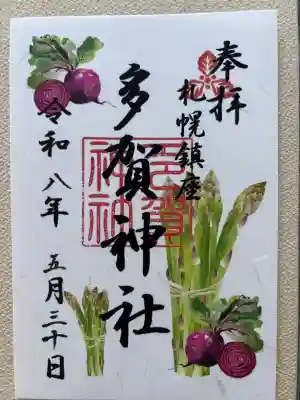 奉拝
札幌鎮座
多賀神社
令和八年 五月三十日
多賀神社